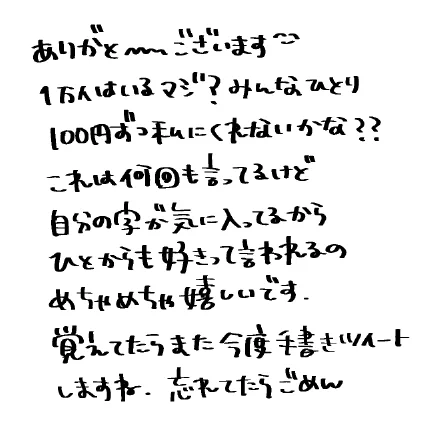 ありがと〜〜ございます
1万人はいるマジ？みんなひとり
100円ずつ私にくれないかな？？
これは何回も言ってるけど
自分の字が気に入ってるから
ひとからも好きって言われるの
めちゃめちゃ嬉しいです.
覚えてたらまた今度手書きツイート
しますね. 忘れてたらごめん